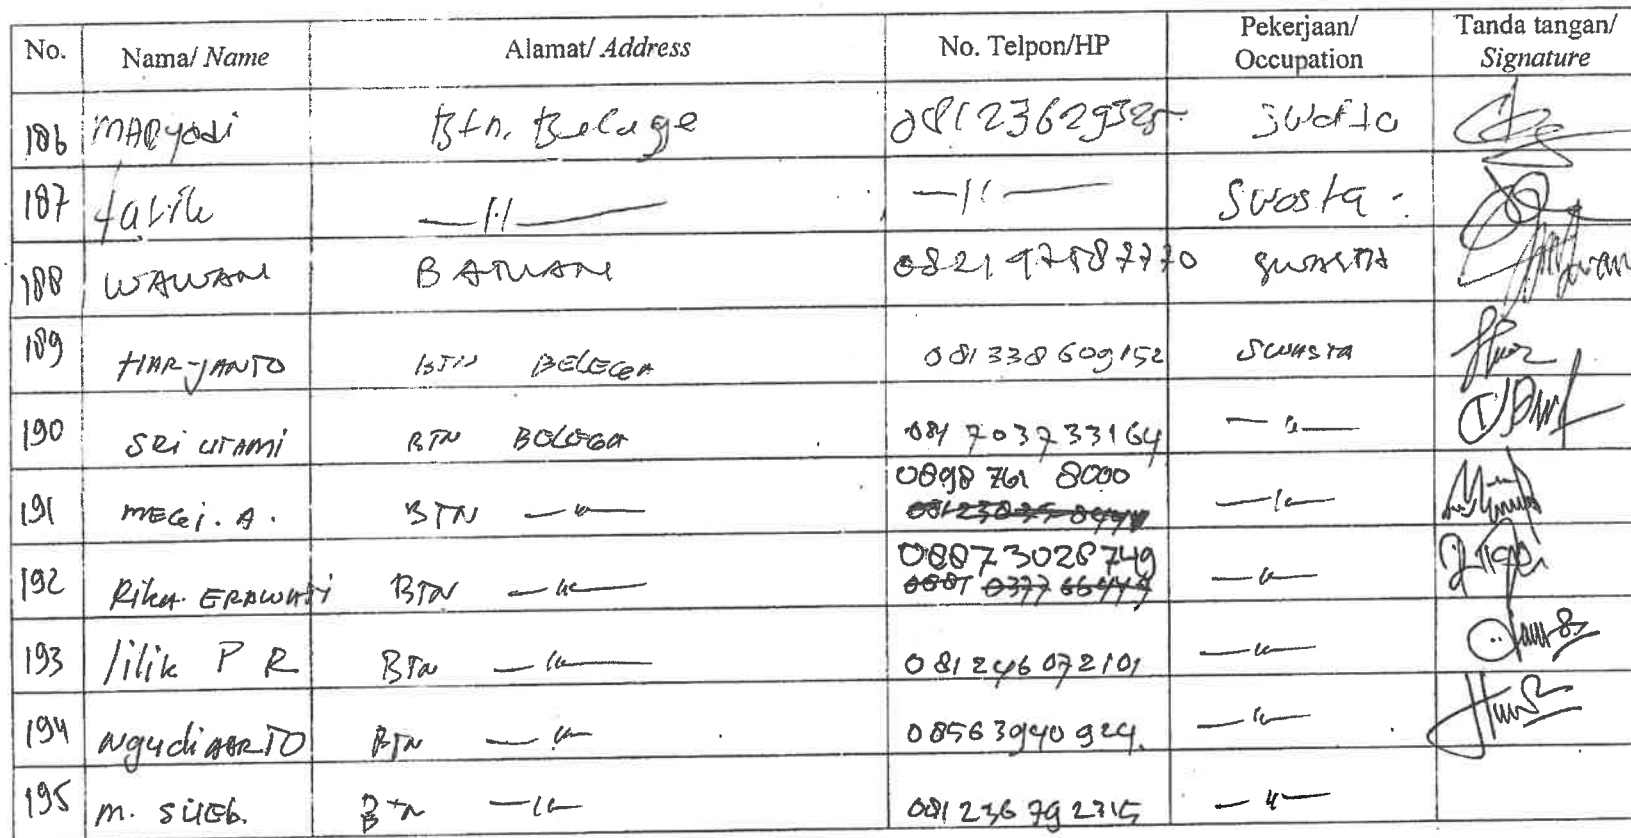 No. Nama/ Name Alamat/ Address No. Telpon/HP Pekerjaan/ Occupation Tanda tangan/ Signature
186 MARyodi Btn. Belage 08123629325 swasta
187 —11— —11— Swosta.
188 WAWAN BATUAN 082197587770 SWASTA
189 HARJANTO BTN BELEGA 081338609152 SWASTA
190 SRI UTAMI BTN BELEGA 081703733164 —11—
0898 761 8000
191 MEGI. A. BTN —11— —11—
08873028749
192 Rika ERAWATi BTN —11— —11—
193 lilik P R BTN —11— 081246072101 —11—
194 NgudiARTO BTN —11— 08563940924. —11—
195 M. SUEB. BTN —11— 081236792315 —11—